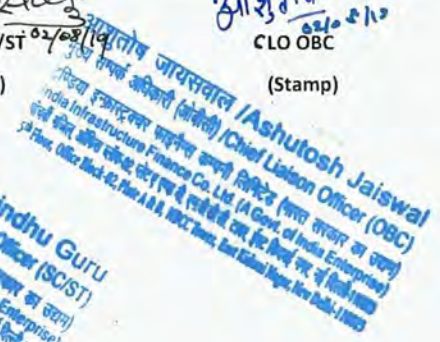 /ST 02/08/19
02/08/19
CLO OBC
(Stamp)
आशुतोष जायसवाल /Ashutosh Jaiswal
मुख्य सम्पर्क अधिकारी (ओबीसी) /Chief Liaison Officer (OBC)
इण्डिया इन्फ्रास्ट्रक्चर फाईनेंस कम्पनी लिमिटेड (भारत सरकार का उद्यम)
India Infrastructure Finance Co. Ltd. (A Govt. of India Enterprise)
5th Floor, Office Block-02, Plate A & B, NBCC Tower, East Kidwai Nagar, New Delhi-110023
indhu Guru
Officer (SC/ST)
सरकार का उद्यम)
Enterprise)